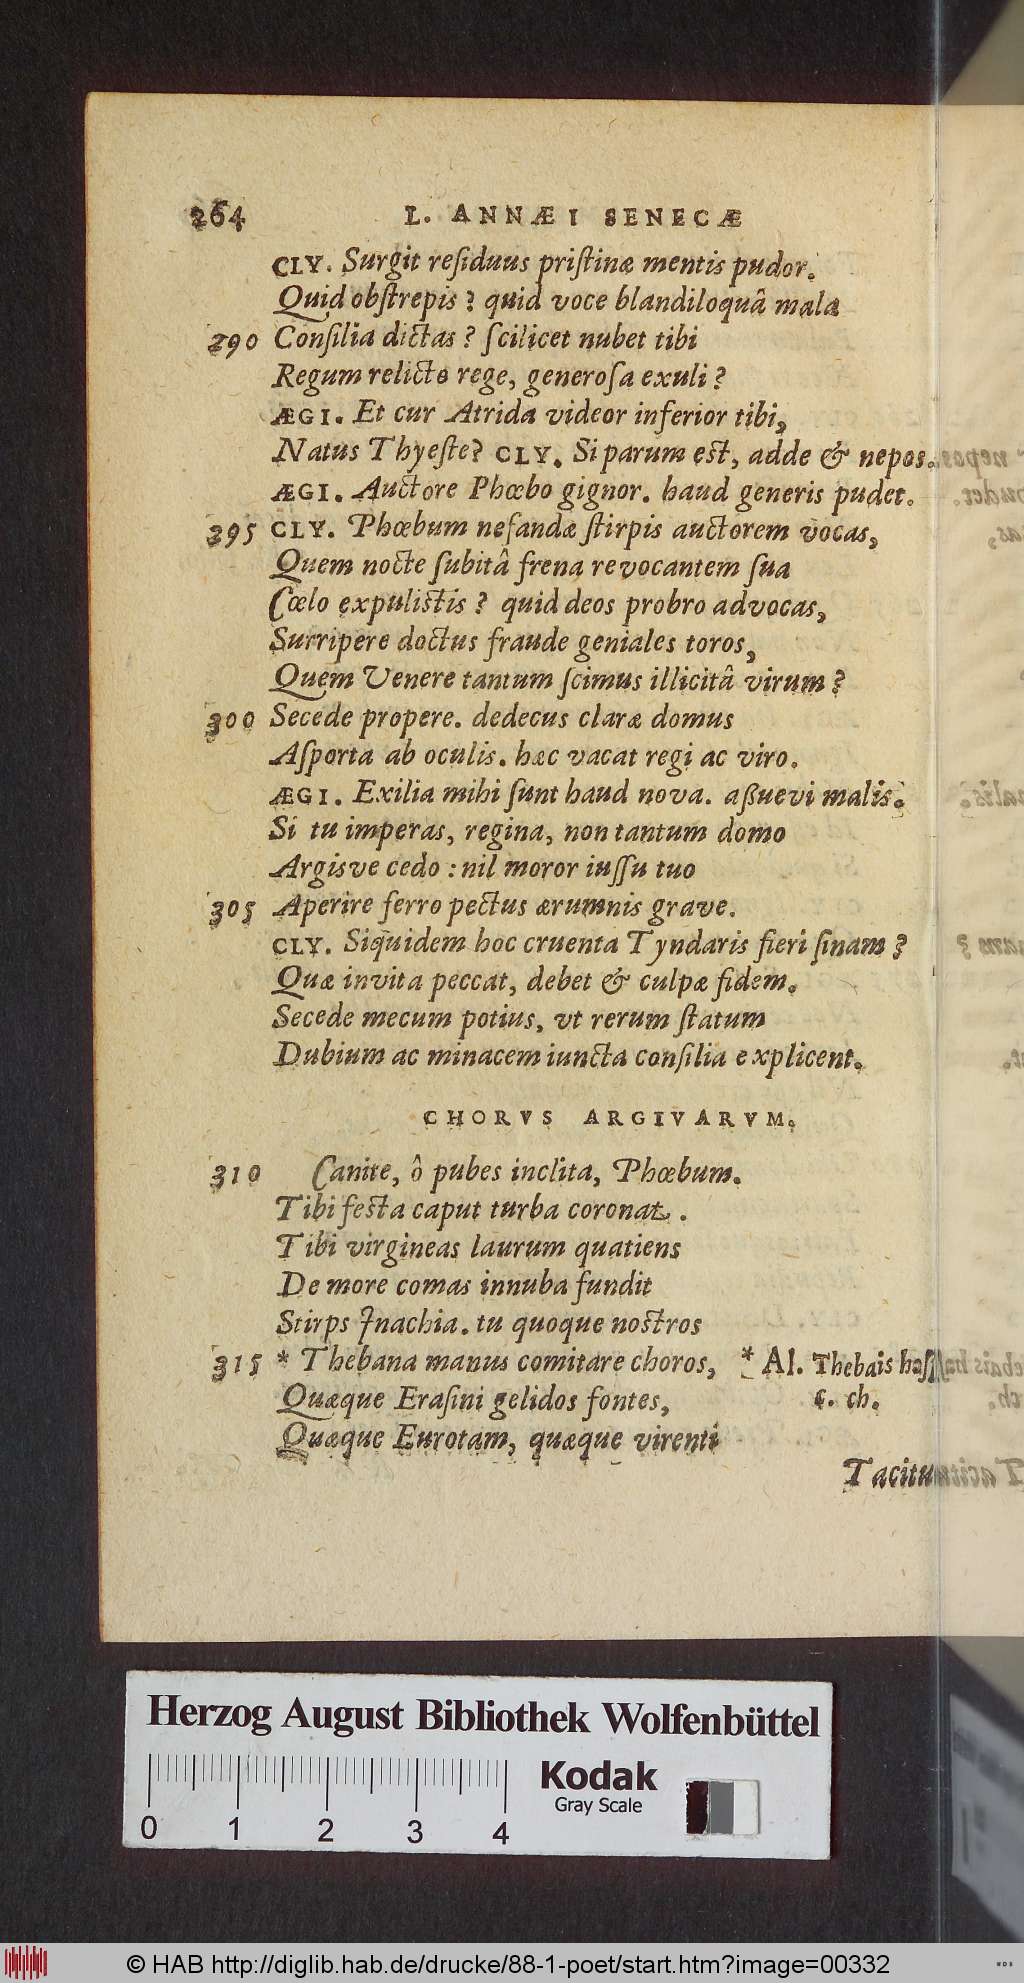 264 L. ANNÆI SENECÆ
CLY. Surgit reſiduus priſtinæ mentis pudor.
Quid obſtrepis? quid voce blandiloquâ mala
290 Conſilia dictas? ſcilicet nubet tibi
Regum relicto rege, generoſa exuli?
ÆGI. Et cur Atrida videor inferior tibi,
Natus Thyeſte? CLY. Si parum est, adde & nepos.
ÆGI. Auctore Phœbo gignor. haud generis pudet.
295 CLY. Phœbum nefandæ ſtirpis auctorem vocas,
Quem nocte ſubitâ frena revocantem ſua
Cœlo expulistis? quid deos probro advocas,
Surripere doctus fraude geniales toros,
Quem Venere tantum ſcimus illicitâ virum?
300 Secede propere. dedecus claræ domus
Aſporta ab oculis. hæc vacat regi ac viro.
ÆGI. Exilia mihi ſunt haud nova. aßuevi malis.
Si tu imperas, regina, non tantum domo
Argisve cedo: nil moror iuſſu tuo
305 Aperire ferro pectus ærumnis grave.
CLY. Siquidem hoc cruenta Tyndaris fieri ſinam?
Quæ invita peccat, debet & culpæ fidem.
Secede mecum potius, vt rerum ſtatum
Dubium ac minacem iuncta conſilia explicent.
CHORVS ARGIVARVM.
310 Canite, ô pubes inclita, Phœbum.
Tibi festa caput turba coronat.
Tibi virgineas laurum quatiens
De more comas innuba fundit
Stirps Inachia. tu quoque nostros
315 * Thebana manus comitare choros, * Al. Thebais haſ
Quæque Eraſini gelidos fontes, c. ch.
Quæque Eurotam, quæque virenti
Tacitum
Herzog August Bibliothek Wolfenbüttel
Kodak
Gray Scale
0 1 2 3 4
© HAB http://diglib.hab.de/drucke/88-1-poet/start.htm?image=00332